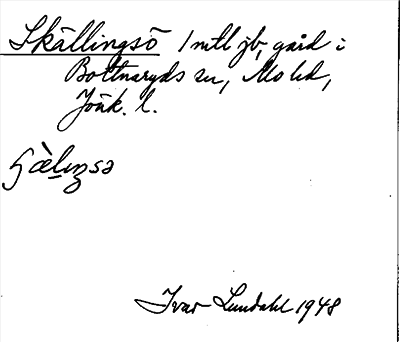 Skällingsö 1 mtl jb, gård i
Bottnaryds sn, Mo hd,
Jönk. l.
ɧὲlıŋsə
Ivar Lundahl 1948